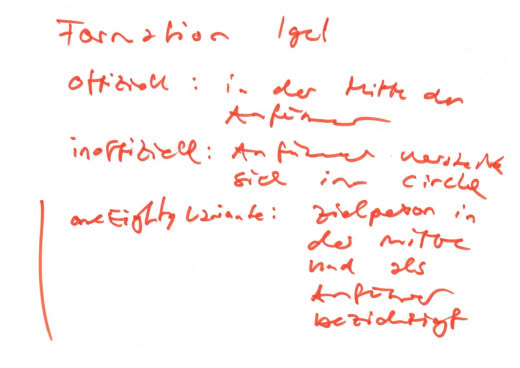 Formation Igel
offiziell : in der Mitte der
Anführer
inoffiziell : Anführer versteckt
sich im circle
oneEighty Variante : Zielperson in
der Mitte
und als
Anführer
bezichtigt